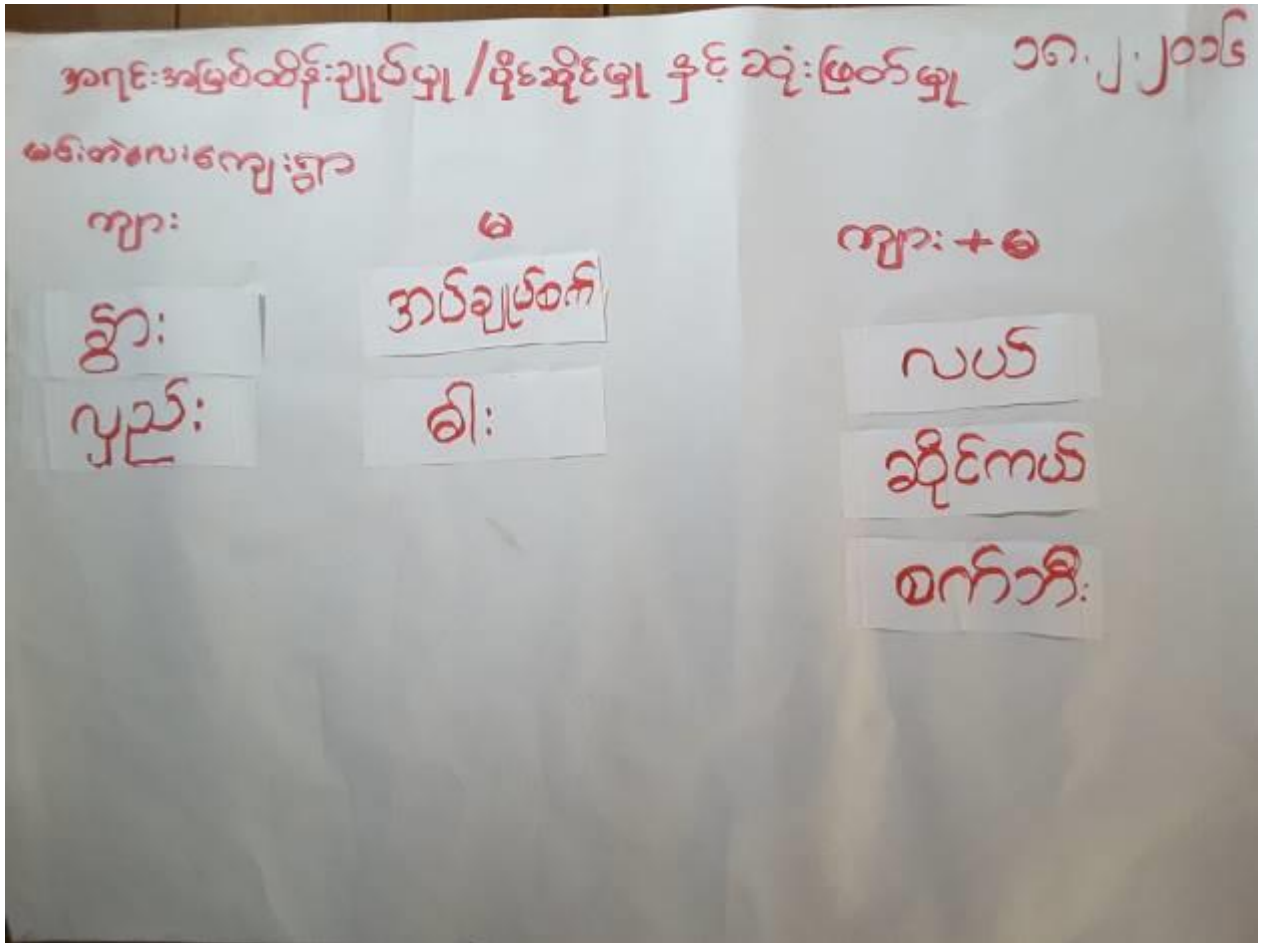 အရင်းအမြစ်ထိန်းချုပ်မှု/ပိုင်ဆိုင်မှု နှင့် ဆုံးဖြတ်မှု ၁၈.၂.၂၀၁၆
မင်းတဲလေးကျေးရွာ
ကျား မ ကျား+မ
နွား အပ်ချုပ်စက်
လှည်း ဓါး လယ်
ဆိုင်ကယ်
စက်ဘီး